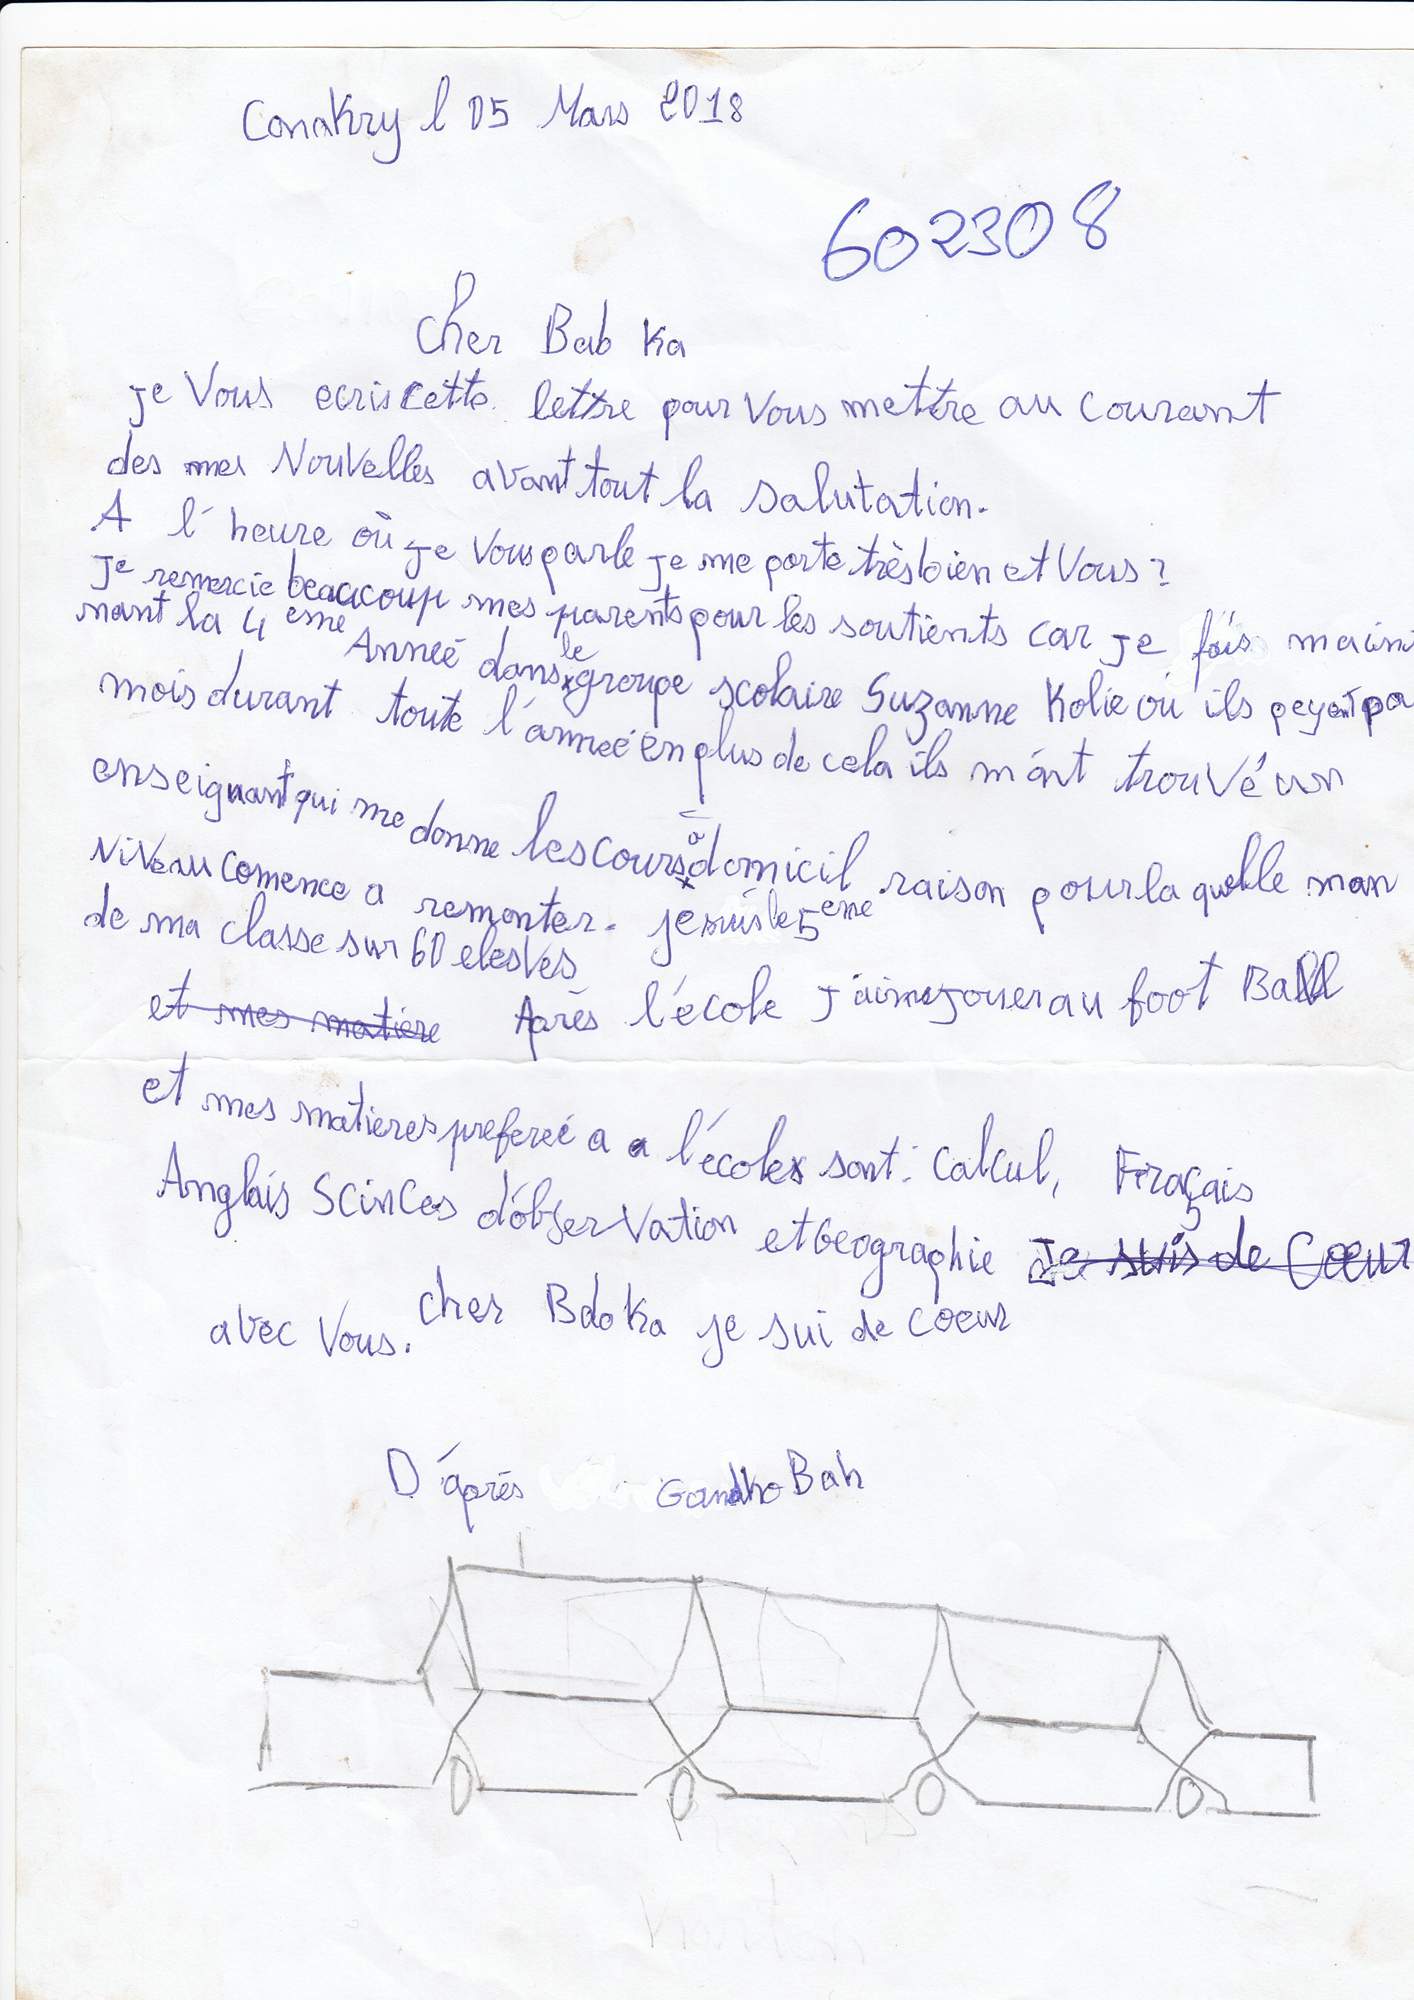 Conakry l 05 Mars 2018
602308
Cher Bab Ka
je Vous ecris cette lettre pour Vous mettre au courant
des mes Nouvelles avant tout la salutation.
A l'heure où je Vous parle je me porte très bien et Vous ?
je remercie beaucoup mes parents pour les soutients car je fais maint
nant la 4 eme Anneé dans le groupe scolaire Suzanne Kolie où ils peyent pa
mois durant toute l'anneé en plus de cela ils m'ont trouvé un
enseignant qui me donne les cours à domicil raison pour la quelle mon
Niveau comence a remonter. je suis le 5 eme
de ma classe sur 60 elesves
et mes matière Après l'école j'aime jouer au foot Ball
et mes matieres prefereé a a l'école sont : Calcul, Fraçais
Anglais Scinces d'observation et Geographie Je suis de Coeur
avec Vous. cher Bdoka je sui de coeur
D'après Gandho Bah